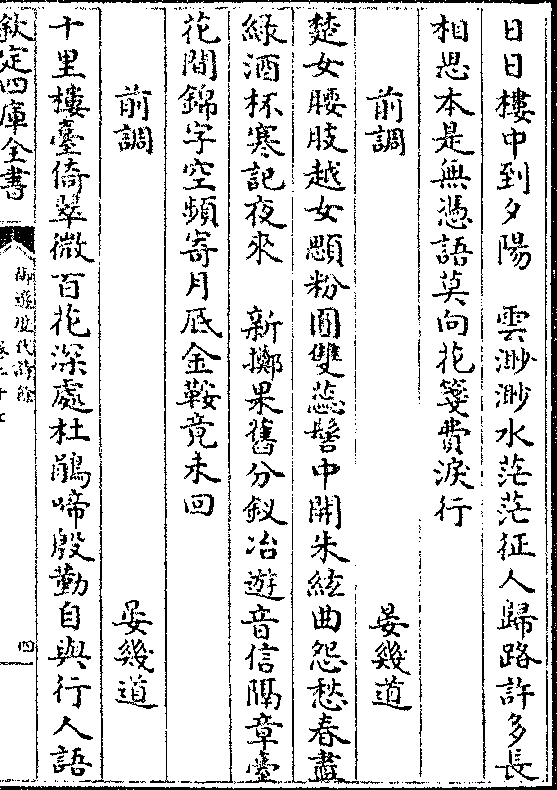 日日樓中到夕陽　雲渺渺水茫茫征人歸路許多長
相思本是無憑語莫向花箋費淚行
前調　晏幾道
楚女腰肢越女顋粉圓雙蕊髻中開朱絃曲怨愁春盡
綠酒杯寒記夜來　新擲果舊分釵冶遊音信隔章臺
花間錦字空頻寄月底金鞍竟未回
前調　晏幾道
十里樓臺倚翠微百花深處杜鵑啼殷勤自與行人語
欽定四庫全書
御選歷代詩餘
四